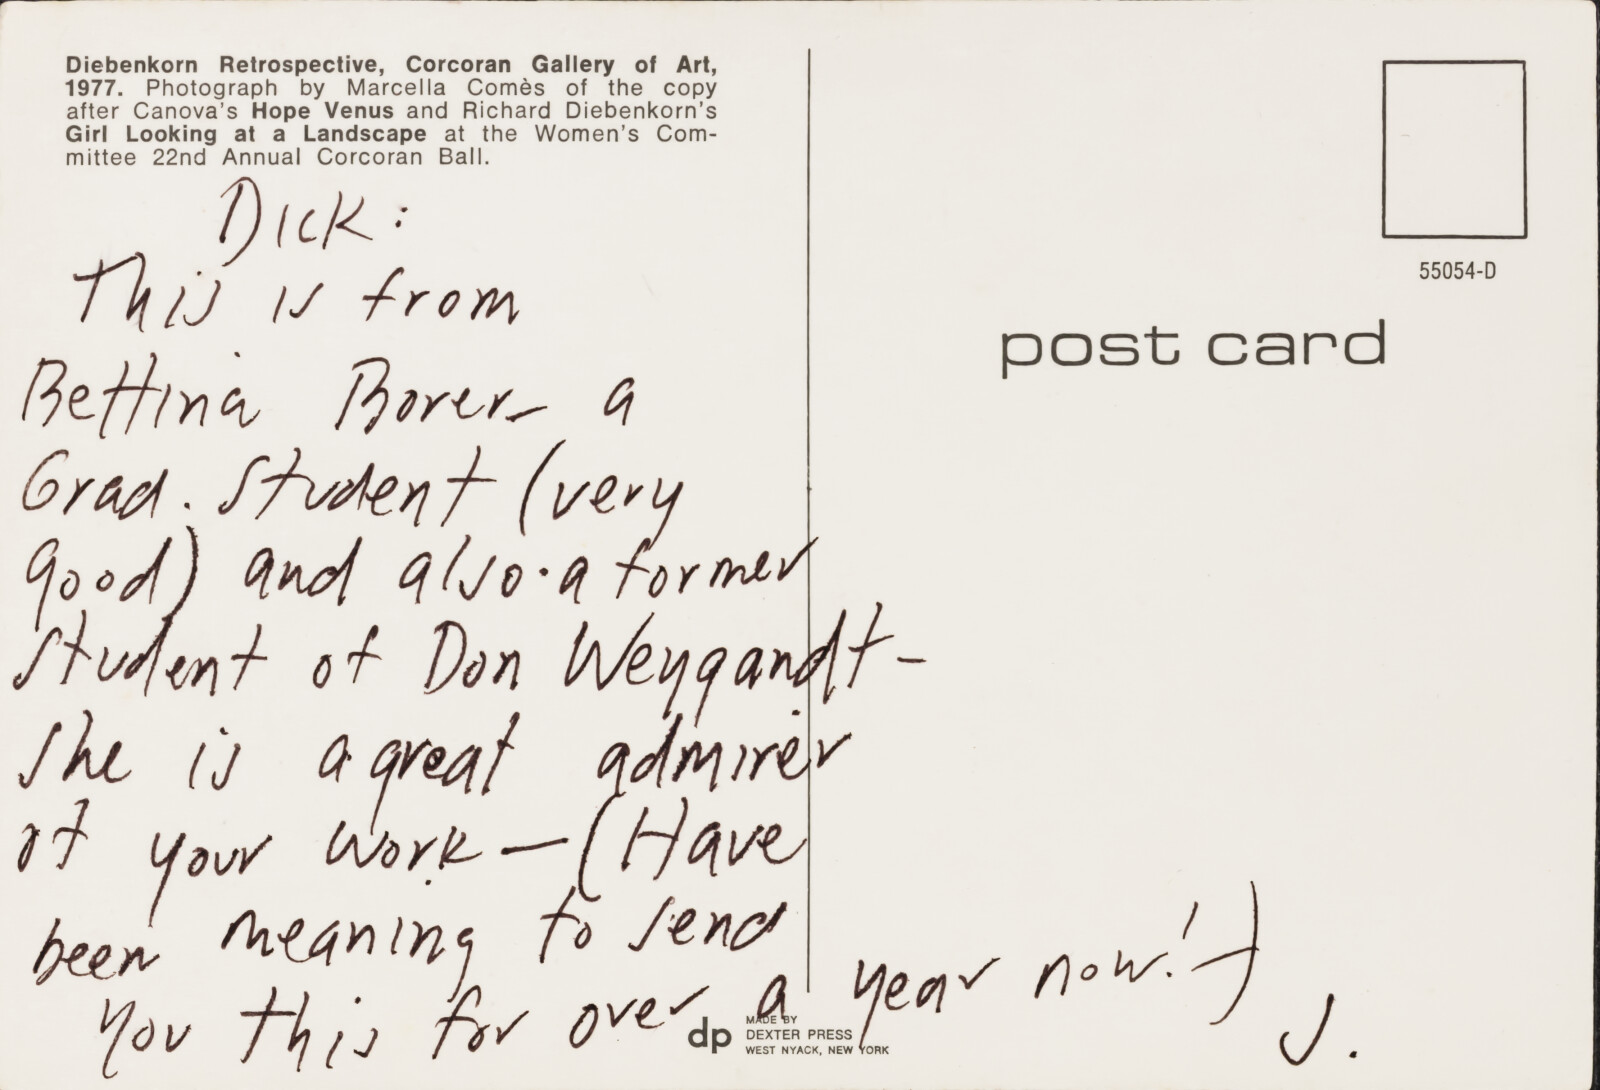 Diebenkorn Retrospective, Corcoran Gallery of Art,
1977. Photograph by Marcella Comès of the copy
after Canova's Hope Venus and Richard Diebenkorn's
Girl Looking at a Landscape at the Women's Com-
mittee 22nd Annual Corcoran Ball.
Dick:
This is from
Bettina Borer- a
Grad. student (very
good) and also a former
student of Don Weygandt-
she is a great admirer
of your work - (Have
been meaning to send
you this for over a year now!-)
J.
55054-D
post card
dp
MADE BY
DEXTER PRESS
WEST NYACK, NEW YORK